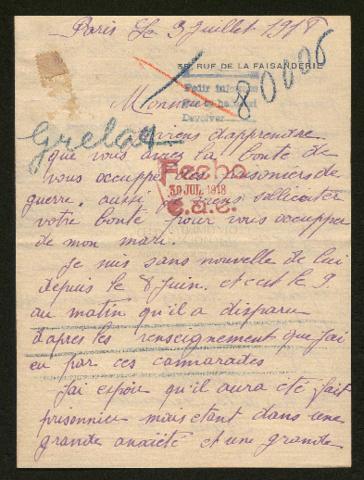 Paris le 3 Juillet 1918
35, RUE DE LA FAISANDERIE
80006
Pedir informe
Devolver
Monsieur
Grelat
viens d'apprendre
que vous avez la bonté de
vous occupper des prisoniers de
Fecho
30 JUL. 1918
C.a.e.
guerre, aussi je viens sollicuter
votre bonté pour vous occupper
de mon mari.
Je suis sans nouvelle de lui
depuis le 8 Juin. et c'est le 9.
au matin qu'il a disparu
d'apres les renseignement que j'ai
eu par ces camarades
j'ai espoir qu'il aura été fait
prisonnier mais etant dans une
grande anxiété et une grande